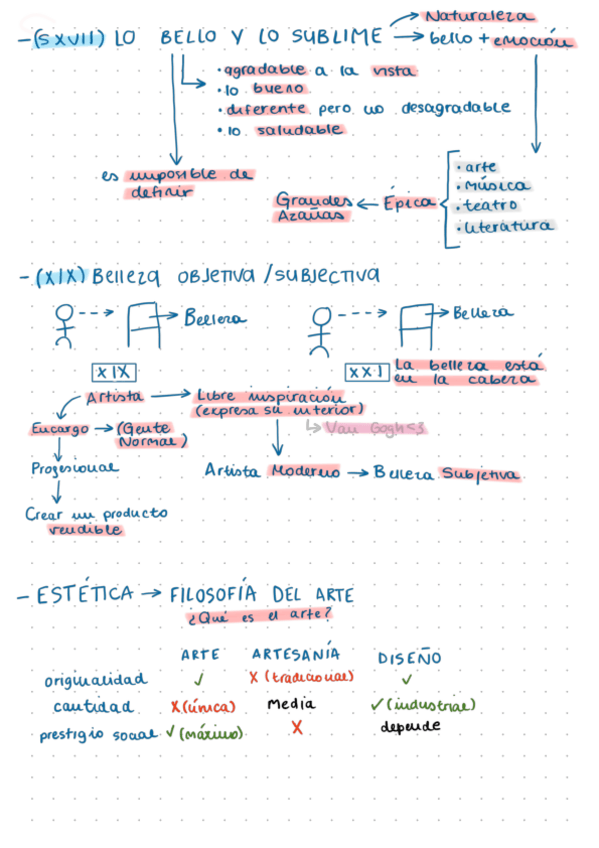 Naturaleza
- (S XVII) LO BELLO Y LO SUBLIME → bello + emoción
• agradable a la vista
• lo bueno
• diferente pero no desagradable
• lo saludable
es imposible de
definir
• arte
• música
• teatro
• literatura
Grandes ← Épica
Azañas
- (XIX) Belleza OBJETIVA / SUBJECTIVA
Belleza
Belleza
XIX
XXI
La belleza está
en la cabeza
Artista → Libre inspiración
(expresa su interior)
Encargo → (Gente
Normal)
Van Gogh <3
Profesional
Artista Moderno → Belleza Subjetiva
Crear un producto
vendible
- ESTÉTICA → FILOSOFÍA DEL ARTE
¿Qué es el arte?
ARTE ARTESANÍA DISEÑO
originalidad ✓ X (tradicional) ✓
cantidad X (única) Media ✓ (industrial)
prestigio social ✓ (máximo) X depende